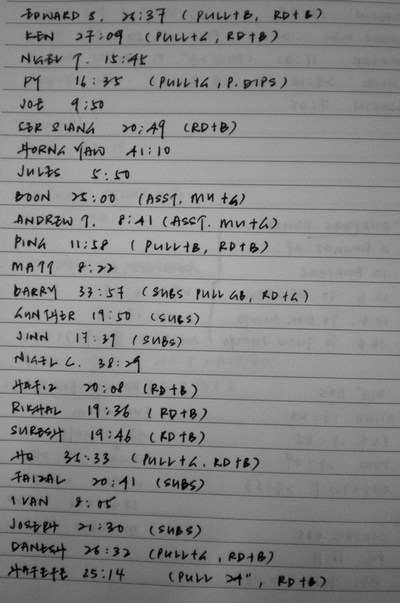 EDWARD S. 26:37 (PULL+B, RD+B)
KEN 27:09 (PULL+G, RD+B)
NIGEL T. 15:45
PY 16:35 (PULL+G, P. DIPS)
JOE 9:50
SER SIANG 20:49 (RD+B)
HORNG YAW 41:10
JULES 5:50
BOON 25:00 (ASST. MU+G)
ANDREW T. 8:41 (ASST. MU+G)
PING 11:58 (PULL+B, RD+B)
MATT 8:22
BARRY 33:57 (SUBS PULL GB, RD+G)
GUNTHER 19:50 (SUBS)
JINN 17:39 (SUBS)
NIGEL C. 38:29
HAFIZ 20:08 (RD+B)
RIKHAL 19:36 (RD+B)
SURESH 19:46 (RD+B)
HO 36:33 (PULL+G, RD+B)
FAIZAL 20:41 (SUBS)
IVAN 8:05
JOSEPH 21:30 (SUBS)
DANESH 26:32 (PULL+G, RD+B)
25:14 (PULL 24", RD+B)